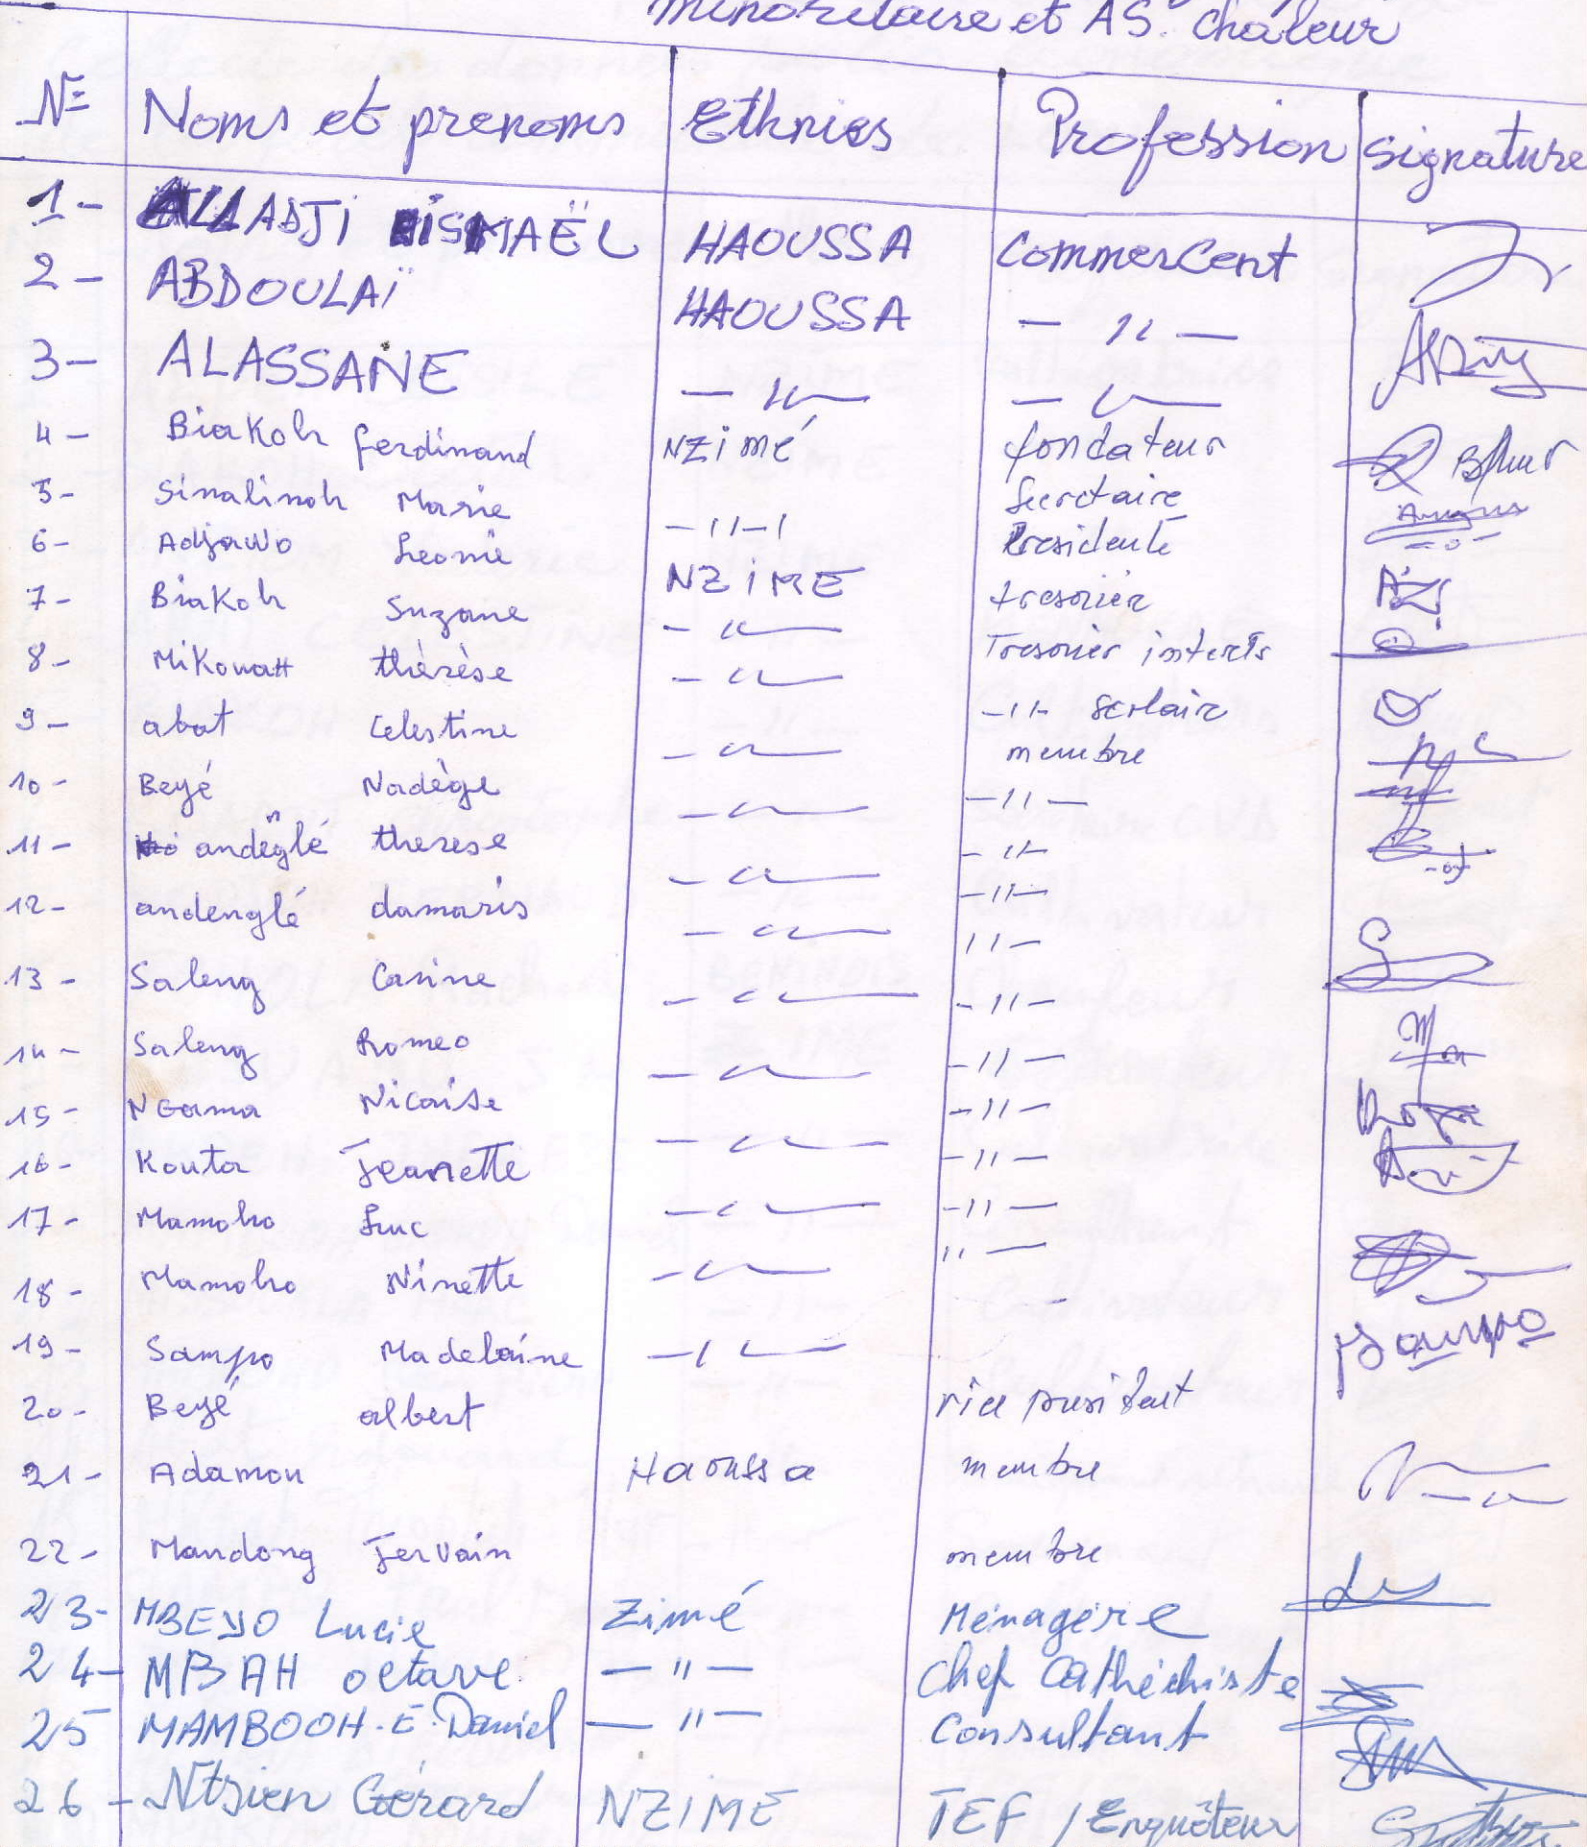 minoritaire et AS. chaleur
N° Noms et prenoms Ethnies Profession signature
1- ALLADJI ISMAËL HAOUSSA CommerCent
2- ABDOULAÏ HAOUSSA — " —
3- ALASSANE — " — — " —
4- Biakoh ferdinand NZimé fondateur
5- Sinalinoh Marie — " — Secretaire
6- Adjawo Leonie NZIME Presidente
7- Biakoh Suzane — " — tresorier
8- Mikouatt thèrèse — " — Tresorier
9- abat Celestine — " — membre
10- Beyé Nadège — " — — " —
11- andeglé therese — " — — " —
12- andenglé damaris — " — — " —
13- Saleng Carine — " — — " —
14- Saleng Romeo — " — — " —
15- NGama Nicaise — " — — " —
16- Kouta Jeanette — " — — " —
17- Mamoho Luc — " — — " —
18- Mamoho Ninette — " — -
19- Sampo Madelaine — " — Sampo
20- Beyé albert vice president
21- Adamou Haoussa membre
22- Mandong Jervain membre
23- MBEYO Lucie Zimé Ménagère
24- MBAH octave — " — Chef Cathéchiste
25 MAMBOOH.E.Daniel — " — Consultant
26- Ntsien Gérard NZIME TEF / Enquêteur